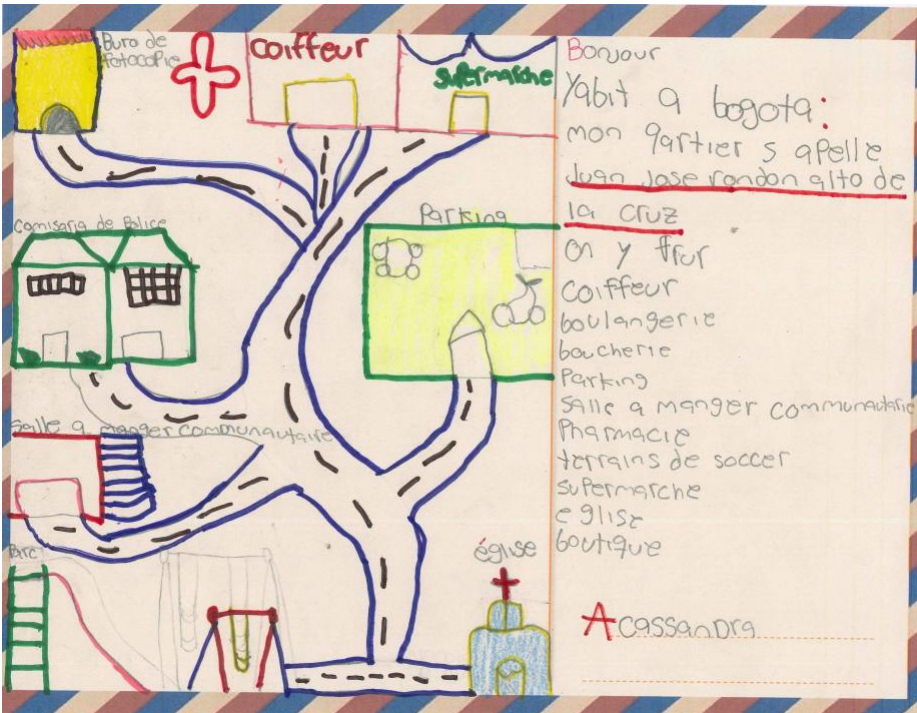 Buro de
fotocopie
coiffeur
supermarche
Comisaria de Police
Parking
Salle a manger communautaire
Parc
église
Bonjour
Yabit a bogota:
mon qartier s apelle
Juan Jose rondon alto de
la cruz
on y
coiffeur
boulangerie
boucherie
Parking
salle a manger communautarie
Pharmacie
terrains de soccer
supermarche
e glise
boutique
A cassandra